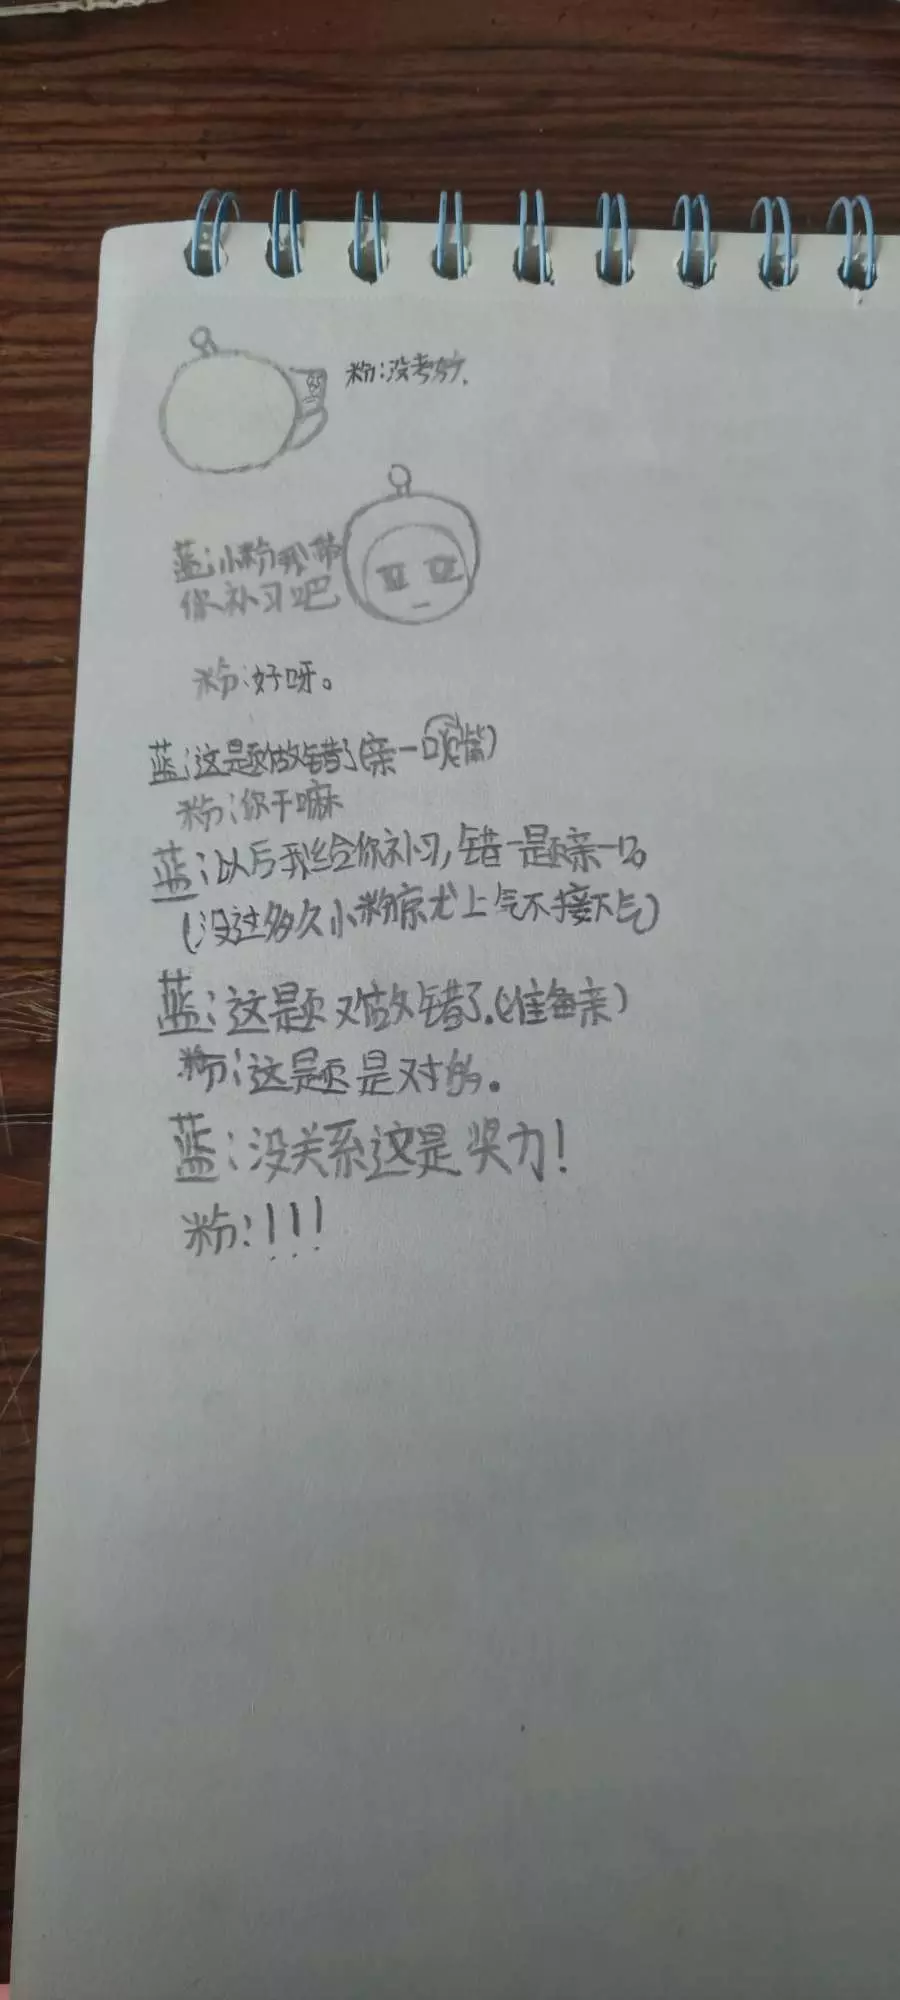 粉:没考好.
蓝:小粉我帮
你补习吧
粉:好呀。
蓝:这题做错了(亲一口嘴)
粉:你干嘛
蓝:以后我给你补习,错一题亲一口。
(没过多久小粉就上气不接下气)
蓝:这题又做错了.(准备亲)
粉:这题是对的。
蓝:没关系这是奖力!
粉:!!!